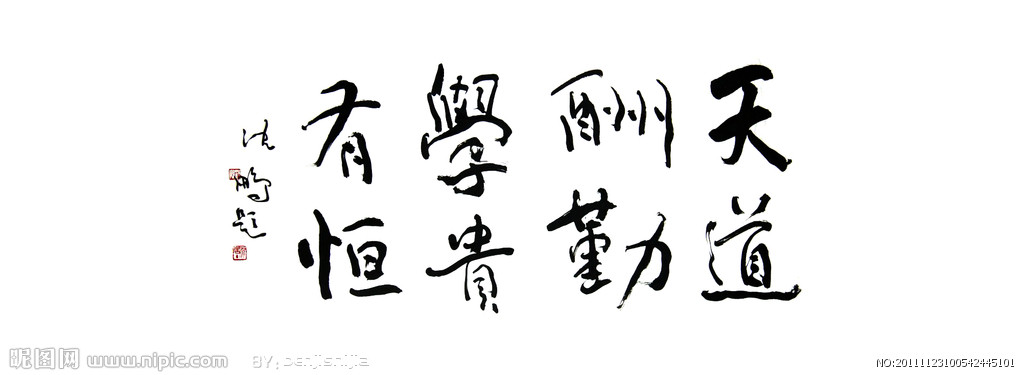 天道
酬勤
學貴
有恒
沈鹏题
昵图网 www.nipic.com
BY: benjishijia
NO:20111123100542445101